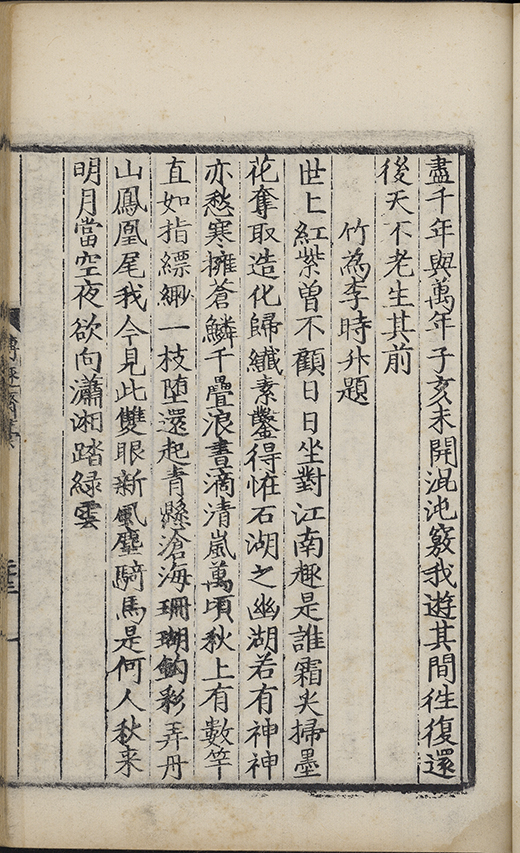 盡千年與萬年子亥未開混沌竅我遊其間徃復還
後天不老生其前
竹為李時升題
世上紅紫曽不顧日日坐對江南趣是誰霜尖掃墨
花奪取造化歸纖素鑿得恠石湖之幽湖若有神神
亦愁寒擁蒼鱗千疊浪晝滴清嵐萬頃秋上有數竿
直如指縹緲一枝堕還起青縣滄海珊瑚鈎彩弄丹
山鳳凰尾我今見此雙眼新風塵騎馬是何人秋来
明月當空夜欲向瀟湘踏緑雲